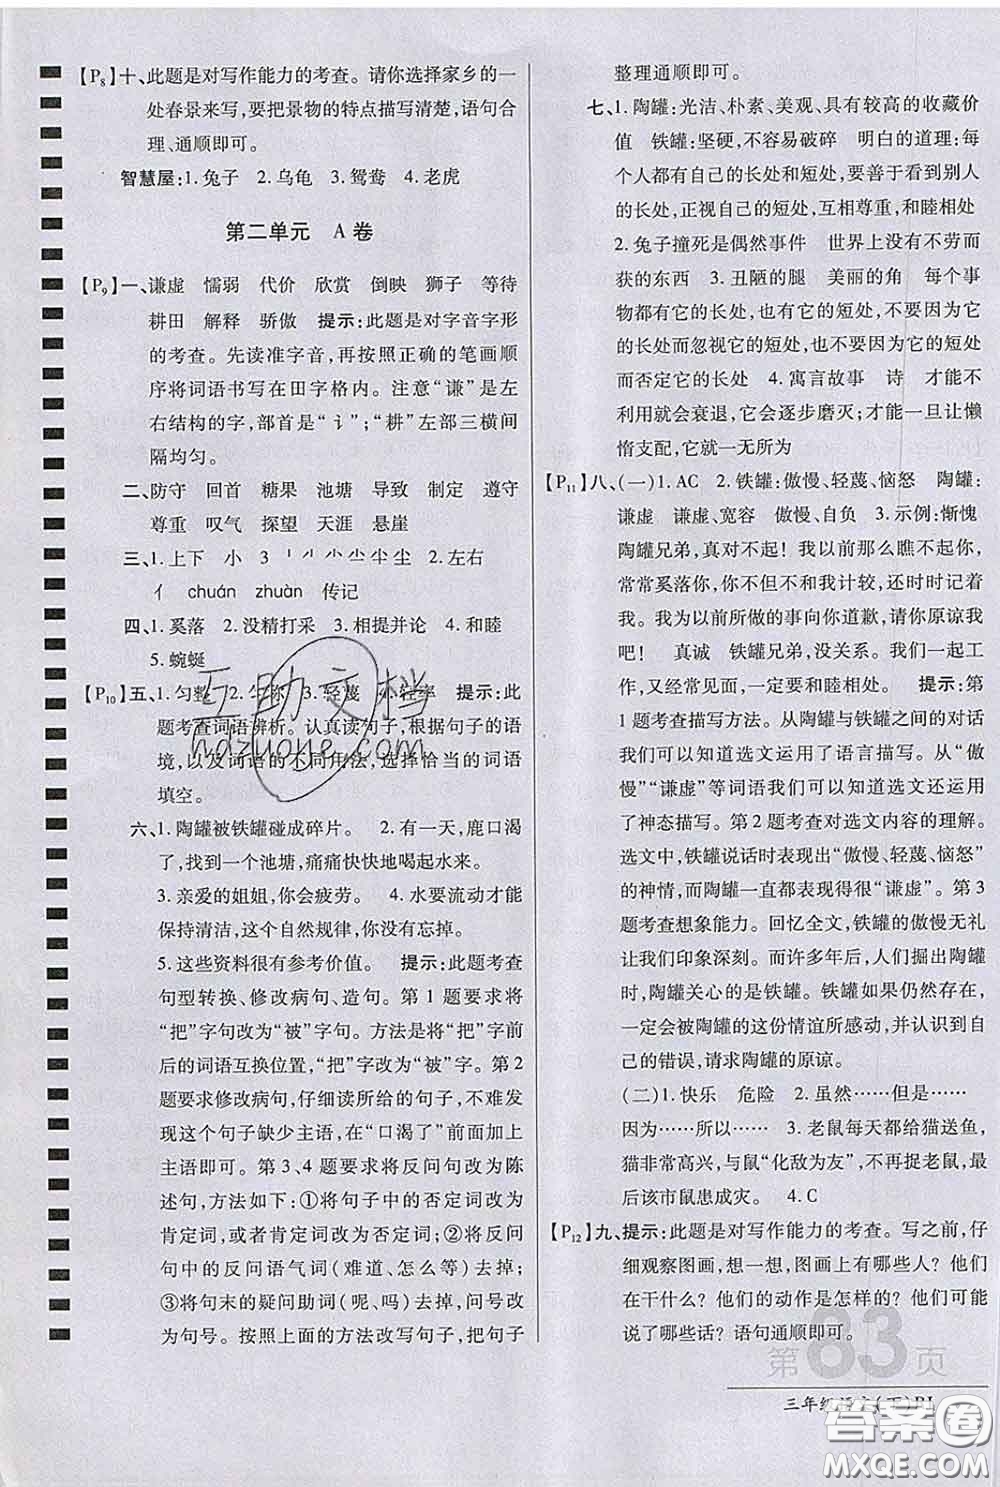 【P8】十、此题是对写作能力的考查。请你选择家乡的一
处春景来写,要把景物的特点描写清楚,语句合
理、通顺即可。
智慧屋:1.兔子 2.乌龟 3.鸳鸯 4.老虎
第二单元 A卷
【P9】一、谦虚 懦弱 代价 欣赏 倒映 狮子 等待
耕田 解释 骄傲 提示:此题是对字音字形
的考查。先读准字音,再按照正确的笔画顺
序将词语书写在田字格内。注意“谦”是左
右结构的字,部首是“讠”;“耕”左部三横间
隔均匀。
二、防守 回首 糖果 池塘 导致 制定 遵守
尊重 叹气 探望 天涯 悬崖
三、1.上下 小 3 丨 小 尐 尘 尘 2.左右
亻 chuán zhuàn 传记
四、1.奚落 2.没精打采 3.相提并论 4.和睦
5.蜿蜒
【P10】五、1.匀整 2.匀称 3.轻蔑 4.轻率 提示:此
题考查词语辨析。认真读句子,根据句子的语
境,以及词语的不同用法,选择恰当的词语
填空。
六、1.陶罐被铁罐碰成碎片。 2.有一天,鹿口渴
了,找到一个池塘,痛痛快快地喝起水来。
3.亲爱的姐姐,你会疲劳。 4.水要流动才能
保持清洁,这个自然规律,你没有忘掉。
5.这些资料很有参考价值。 提示:此题考查
句型转换、修改病句、造句。第1题要求将
“把”字句改为“被”字句。方法是将“把”字前
后的词语互换位置,“把”字改为“被”字。第2
题要求修改病句,仔细读所给的句子,不难发现
这个句子缺少主语,在“口渴了”前面加上
主语即可。第3、4题要求将反问句改为陈
述句,方法如下:①将句子中的否定词改为
肯定词,或者肯定词改为否定词;②将反问
句中的反问语气词(难道、怎么等)去掉;
③将句末的疑问助词(呢、吗)去掉,问号改
为句号。按照上面的方法改写句子,把句子
整理通顺即可。
七、1.陶罐:光洁、朴素、美观、具有较高的收藏价
值 铁罐:坚硬,不容易破碎 明白的道理:每个
人都有自己的长处和短处,要善于看到别人
的长处,正视自己的短处,互相尊重,和睦相处
2.兔子撞死是偶然事件 世界上没有不劳而
获的东西 3.丑陋的腿 美丽的角 每个事
物都有它的长处,也有它的短处,不能因为它的
长处而忽视它的短处,也不能因为它的短处
而否定它的长处 4.寓言故事 诗 才能不
利用就会衰退,它会逐步磨灭;才能一旦让懒
惰支配,它就一无所为
【P11】八、(一)1.AC 2.铁罐:傲慢、轻蔑、恼怒 陶罐:
谦虚 谦虚、宽容 傲慢、自负 3.示例:惭愧
陶罐兄弟,真对不起!我以前那么瞧不起你,
常常奚落你,你不但不和我计较,还时时记着
我。我对以前所做的事向你道歉,请你原谅我
吧! 真诚 铁罐兄弟,没关系。我们一起工
作,又经常见面,一定要和睦相处。 提示:第
1题考查描写方法。从陶罐与铁罐之间的对话
我们可以知道选文运用了语言描写。从“傲
慢”“谦虚”等词语我们可以知道选文还运用
了神态描写。第2题考查对选文内容的理解。
选文中,铁罐说话时表现出“傲慢、轻蔑、恼怒”
的神情,而陶罐一直都表现得很“谦虚”。第3
题考查想象能力。回忆全文,铁罐的傲慢无礼
让我们印象深刻。而许多年后,人们挖出陶罐
时,陶罐关心的是铁罐。铁罐如果仍然存在,
一定会被陶罐的这份情谊所感动,并认识到自
己的错误,请求陶罐的原谅。
(二)1.快乐 危险 2.虽然……但是……
因为……所以…… 3.老鼠每天都给猫送鱼,
猫非常高兴,与鼠“化敌为友”,不再捉老鼠,最
后该市鼠患成灾。 4.C
【P12】九、提示:此题是对写作能力的考查。写之前,仔
细观察图画,想一想,图画上有哪些人?他们
在干什么?他们的动作是怎样的?他们可能
说了哪些话?语句通顺即可。
第83页
三年级语文(下)RJ
互助文档
hdzuoye.com
答案圈
MXQE.COM